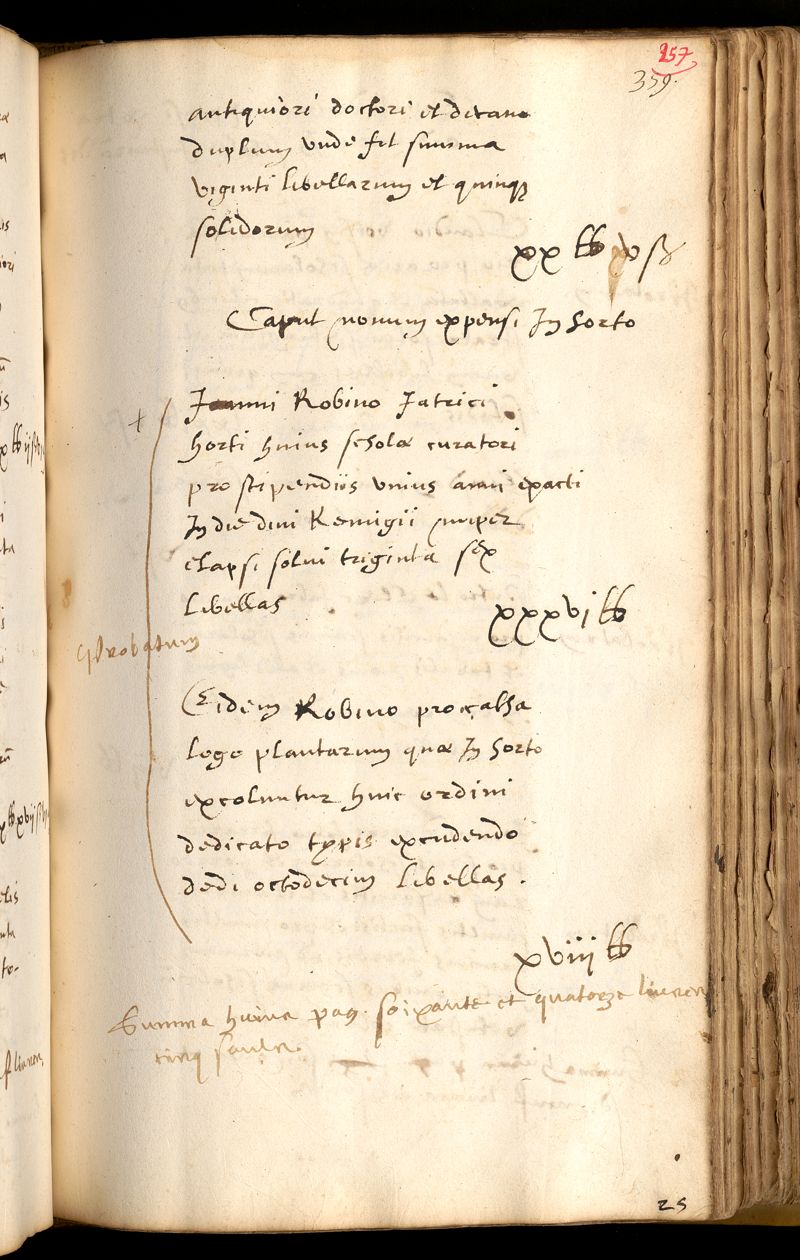 257
359.
antiquiori doctori et decano
duplum unde fit summa
viginti libellarum et quinqȝ
solidorum
xx ℔ v ß
Caput nonum expensi In horto
Joanni Robino Iatrici
horti huius scholæ curatori
pro stipendiis unius anni exacti
In die divi Remigii nuper
elapsi solui triginta sex
libellas
xxxvj ℔
approbatum
Eidem Robino pro catha
logo plantarum quæ In horto
excoluntur huic ordini
dedicato typis excudendo
dedi octodecim libellas.
xviij ℔
Summa huius pag. soixante et quatorze livres
cinq soulz.
25